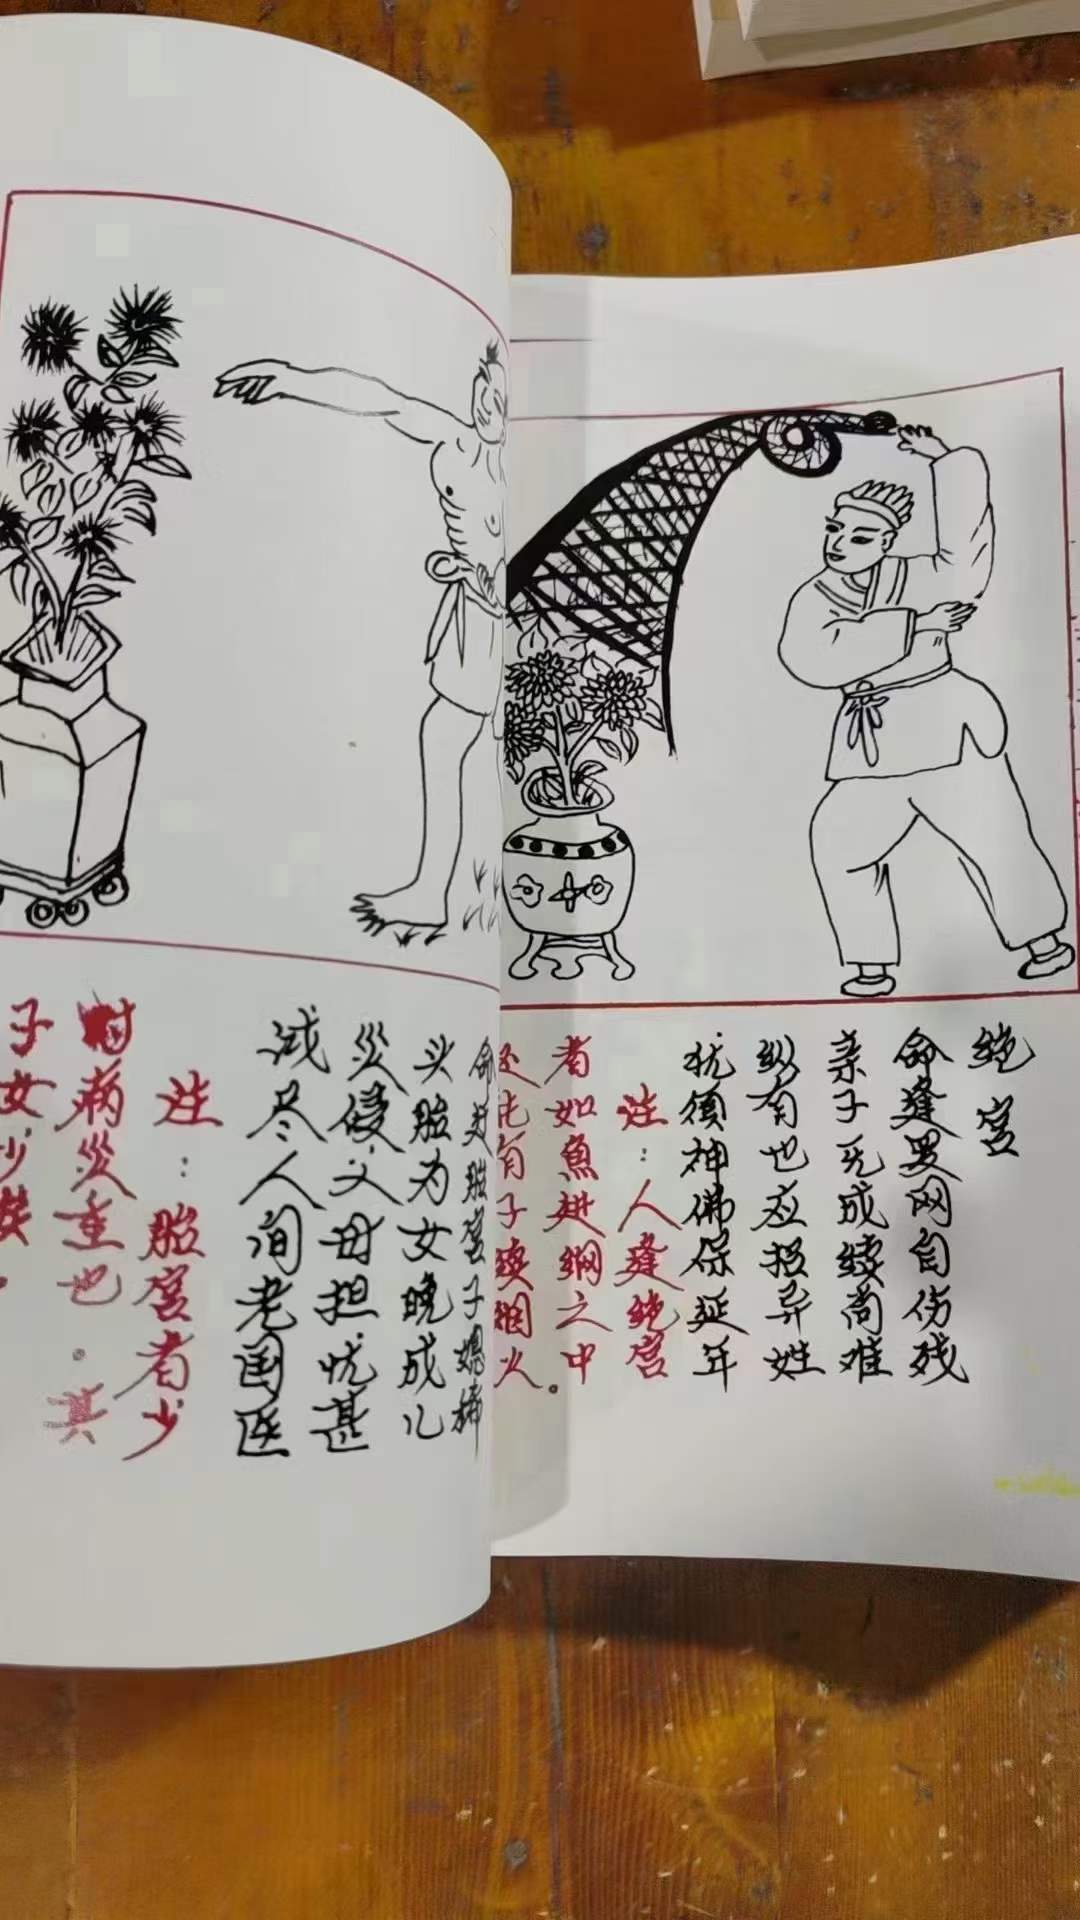 绝宫
命逢罗网自伤残
亲子死成续尚难
纵有也应招异姓
犹须神佛保延年
注：人逢绝宫
者如魚进網之中
还. 花有子续烟火。
头胎为女晚成儿
災侵父母担忧甚
减尽人间老国医
注：胎宫者少
时病災重也。其
子女少